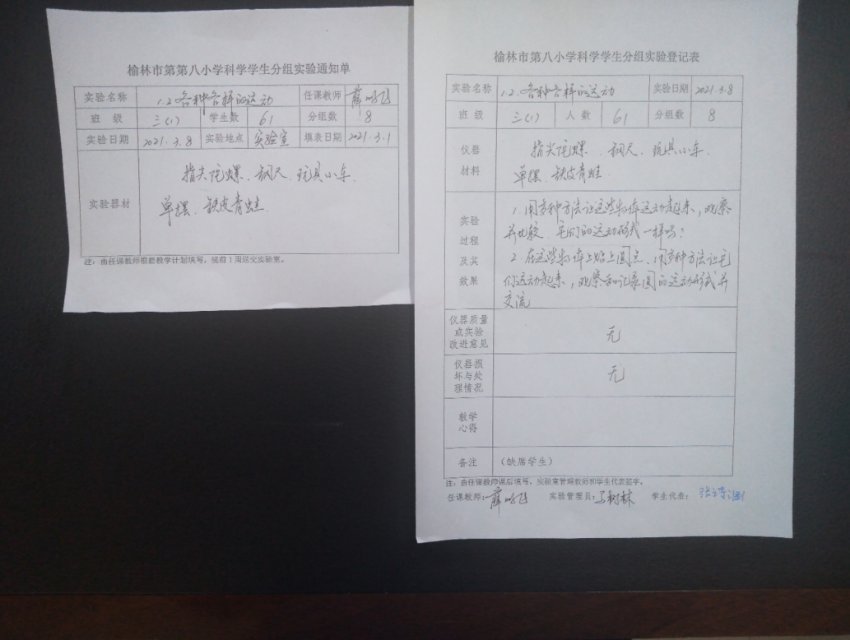 榆林市第第八小学科学学生分组实验通知单
实验名称 1.2各种各样的运动 任课教师 薛鸣飞
班 级 三(1) 学生数 61 分组数 8
实验日期 2021.3.8 实验地点 实验室 填表日期 2021.3.1
实验器材
指尖陀螺、钢尺、玩具小车、
单摆、铁皮青蛙
注:由任课教师根据教学计划填写,提前1周送交实验室。
榆林市第八小学科学学生分组实验登记表
实验名称 1.2各种各样的运动 实验日期 2021.3.8
班 级 三(1) 人 数 61 分组数 8
仪器材料
指尖陀螺、钢尺、玩具小车、
单摆、铁皮青蛙
实验过程及实效果
1.用多种方法让这些物体运动起来,观察
并比较,它们的运动形式一样吗?
2.在这些物体上贴上圆点,用多种方法让它
们运动起来,观察和记录圆的运动形式并
交流
仪器质量或实验改进意见 无
仪器损坏与处理情况 无
教学心得
备注 (缺席学生)
注:由任课教师课后填写,实验室管理教师和学生代表签字。
任课教师:薛鸣飞 实验管理员:马树林 学生代表: